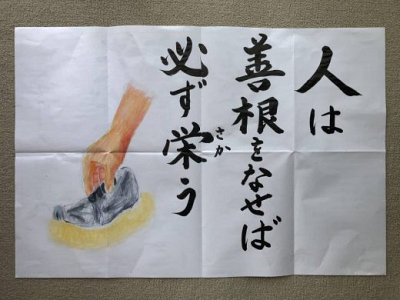 人は
善根をなせば
必ず栄う
さか